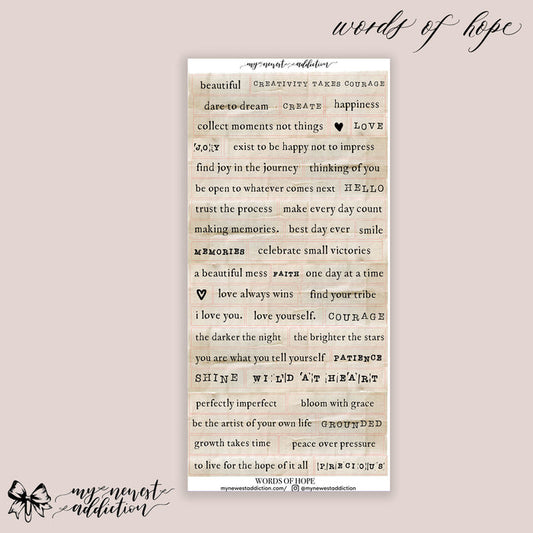 words of hope
my newest addiction
beautiful CREATIVITY TAKES COURAGE
dare to dream CREATE happiness
collect moments not things LOVE
JOY exist to be happy not to impress
find joy in the journey thinking of you
be open to whatever comes next HELLO
trust the process make every day count
making memories. best day ever smile
MEMORIES celebrate small victories
a beautiful mess FAITH one day at a time
love always wins find your tribe
i love you. love yourself. COURAGE
the darker the night the brighter the stars
you are what you tell yourself PATIENCE
SHINE WILD AT HEART
perfectly imperfect bloom with grace
be the artist of your own life GROUNDED
growth takes time peace over pressure
to live for the hope of it all PRECIOUS
WORDS OF HOPE
mynewestaddiction.com/ @mynewestaddiction
my newest
addiction